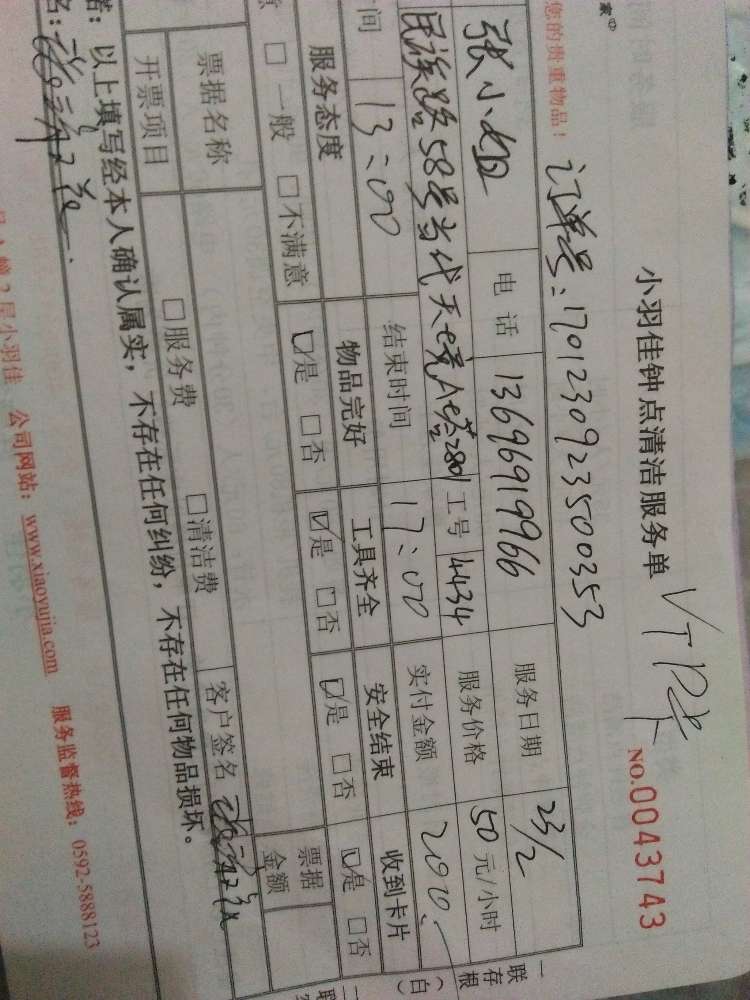 家®
小羽佳钟点清洁服务单
NO.0043743
您的贵重物品！
订单号：170123092350035​3
张小姐 电话 13696919966 服务日期 23/2
民族路58号当代天境A塔2801 工号 4434 服务价格 50元/小时
时间 13:00 结束时间 17:00 实付金额 200.
服务态度 物品完好 工具齐全 安全结束 收到卡片
意 □一般 □不满意 ☑是 □否 ☑是 □否 ☑是 □否 ☑是 □否
票据名称 客户签名 票据金额
开票项目 □服务费 □清洁费
：以上填写经本人确认属实，不存在任何纠纷，不存在任何物品损坏。
名：
2层小羽佳 公司网站：www.xiaoyujia.com 服务监督热线：0592-5888123
一联存根（白）